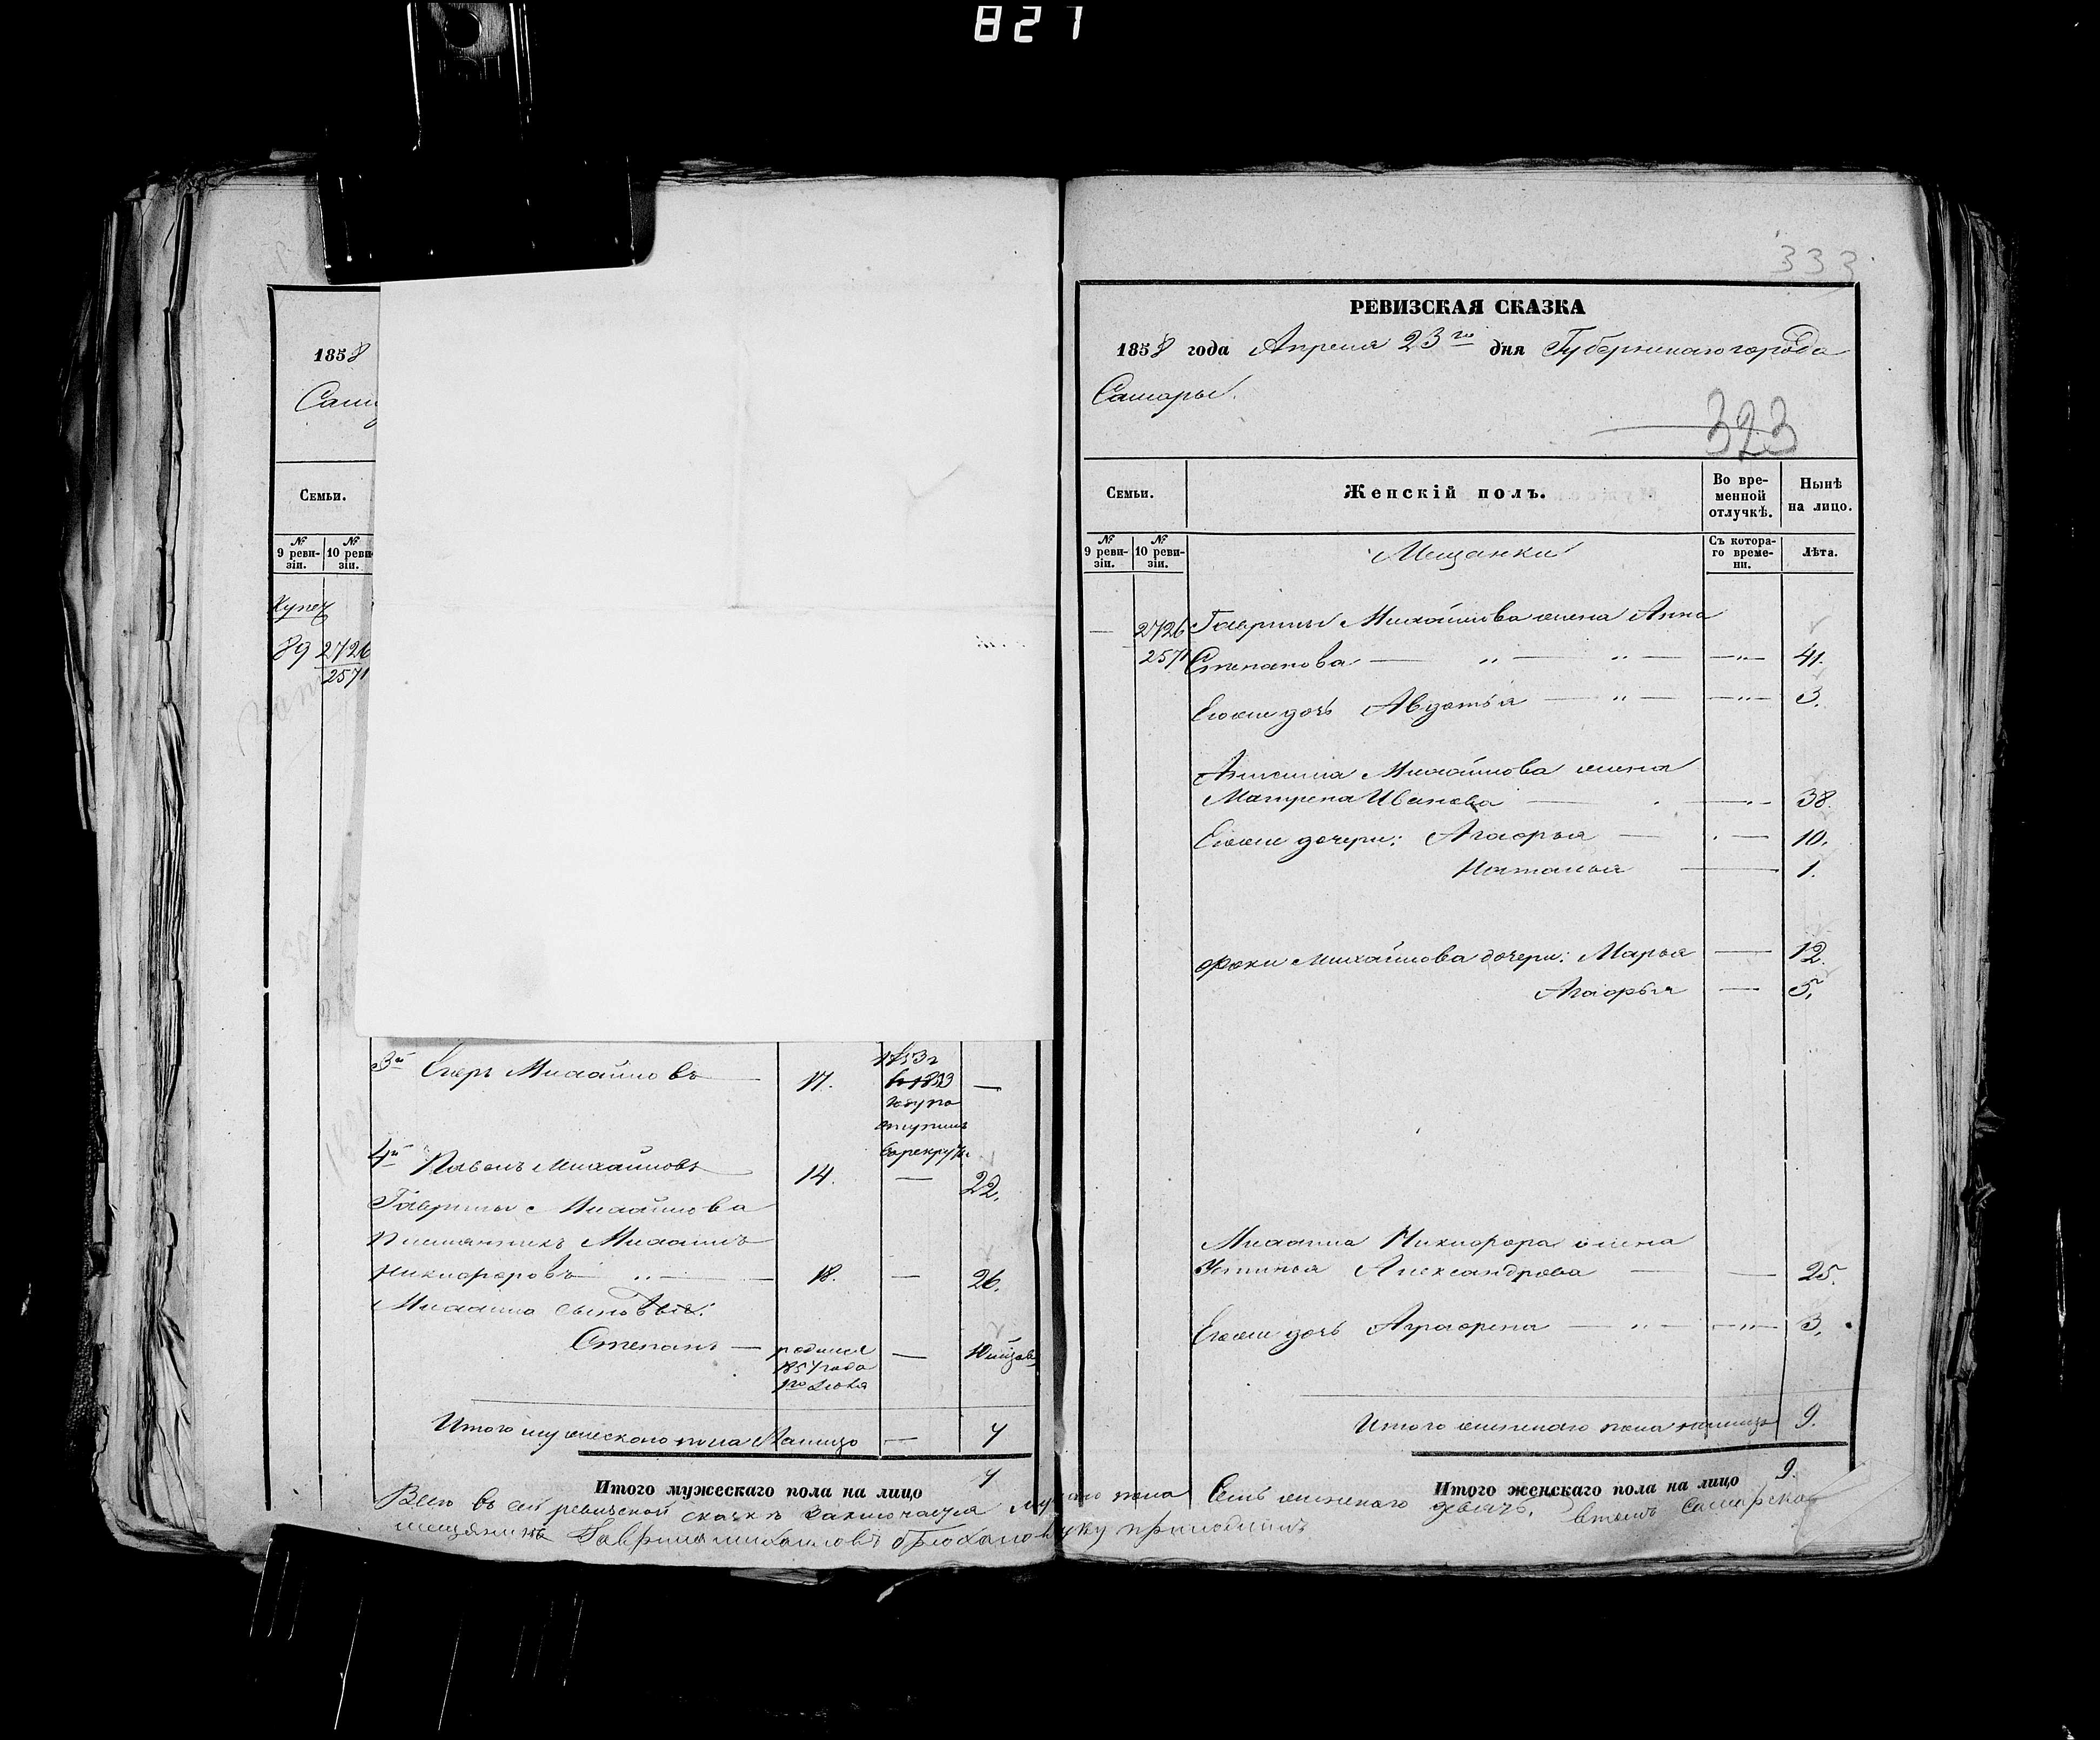 827
1858
Сам
Семьи.
№ 9 ревизіи. № 10 реви зіи.
Купец
89 2726
2571
3й Егоръ Михайловъ — 17. 1853 г —
в 1853
году по
ступилъ
въ рекруты
4й Павелъ Михайловъ 14. — 22.
Гаврилы Михайлова
Племянникъ Михаилъ
Никифоровъ — „ — 18. — 26.
Михаила сыновья:
Степанъ — родился —
1857 года
Итого мужескаго пола налицо — 7
Итого мужескаго пола на лицо 7
333
РЕВИЗСКАЯ СКАЗКА
1858 года Апреля 23го дня Губернскаго города
Самары.
323
Семьи. Женскій полъ. Во вре-менной отлучкѣ. Нынѣ на лицо.
№ 9 реви-зіи. № 10 реви-зіи. Мещанки Съ котора-го време-ни. Лѣта.
— 2726 Гаврилы Михайлова жена Анна
2571 Степанова — „ — „ — — „ — 41.
Егоже дочь Авдотья — „ — — „ — 3.
Михайлова жена
Матрена Иванова — 38.
Егоже дочери: Агафья — 10.
Наталья — 1.
Фоки Михайлова дочери: Марья — 12.
Агафья — 5.
Михаила Никифорова жена
Устинья Александрова — — 25.
Егоже дочь Аграфена — „ — — „ — 3.
Итого женскаго пола налицо 9.
Итого женскаго пола на лицо 9.
Всего въ сей ревиской скаскѣ заключается мужска пола Семь женскаго девять. втомъ Самарской
мещанинъ Гаврила михаиловъ брюханов руку приложилъ